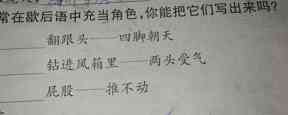 常在歇后语中充当角色,你能把它们写出来吗?
翻跟头——四脚朝天
钻进风箱里——两头受气
屁股——推不动